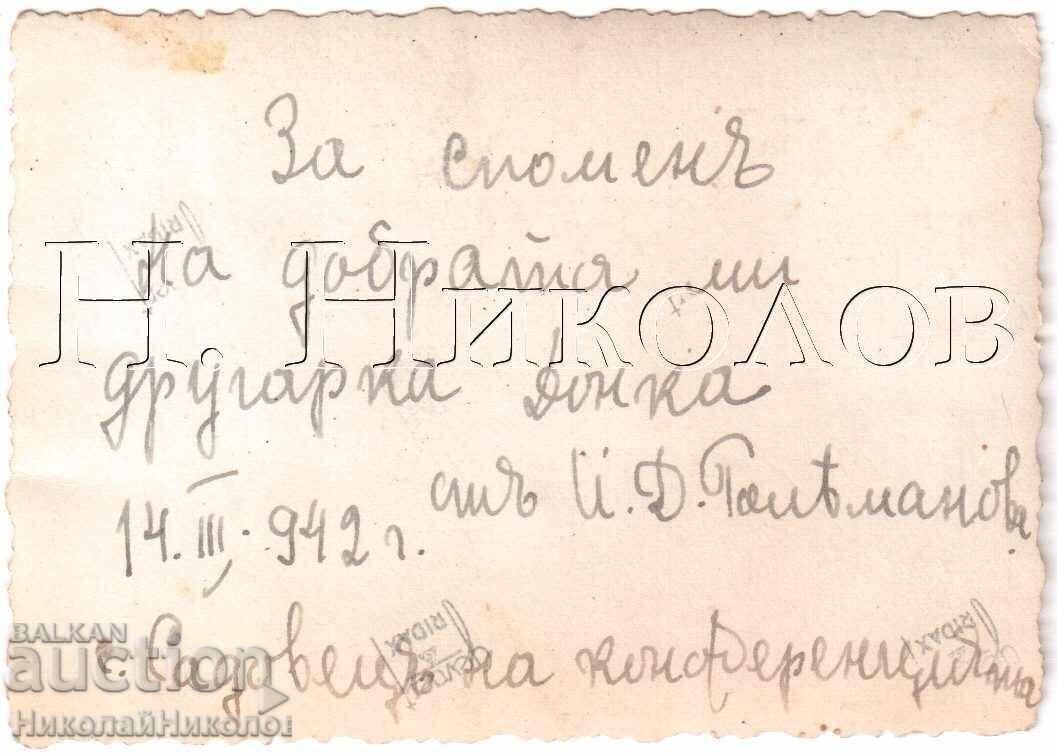 За споменъ
На добрата ми
другарка Донка
отъ Й. Д. Голѣманова
14. III. 942 г.
с. Садовецъ на конференцията
Н. Николов
BALKAN
auction
НиколайНиколов
RIDAX
RIDAX
RIDAX